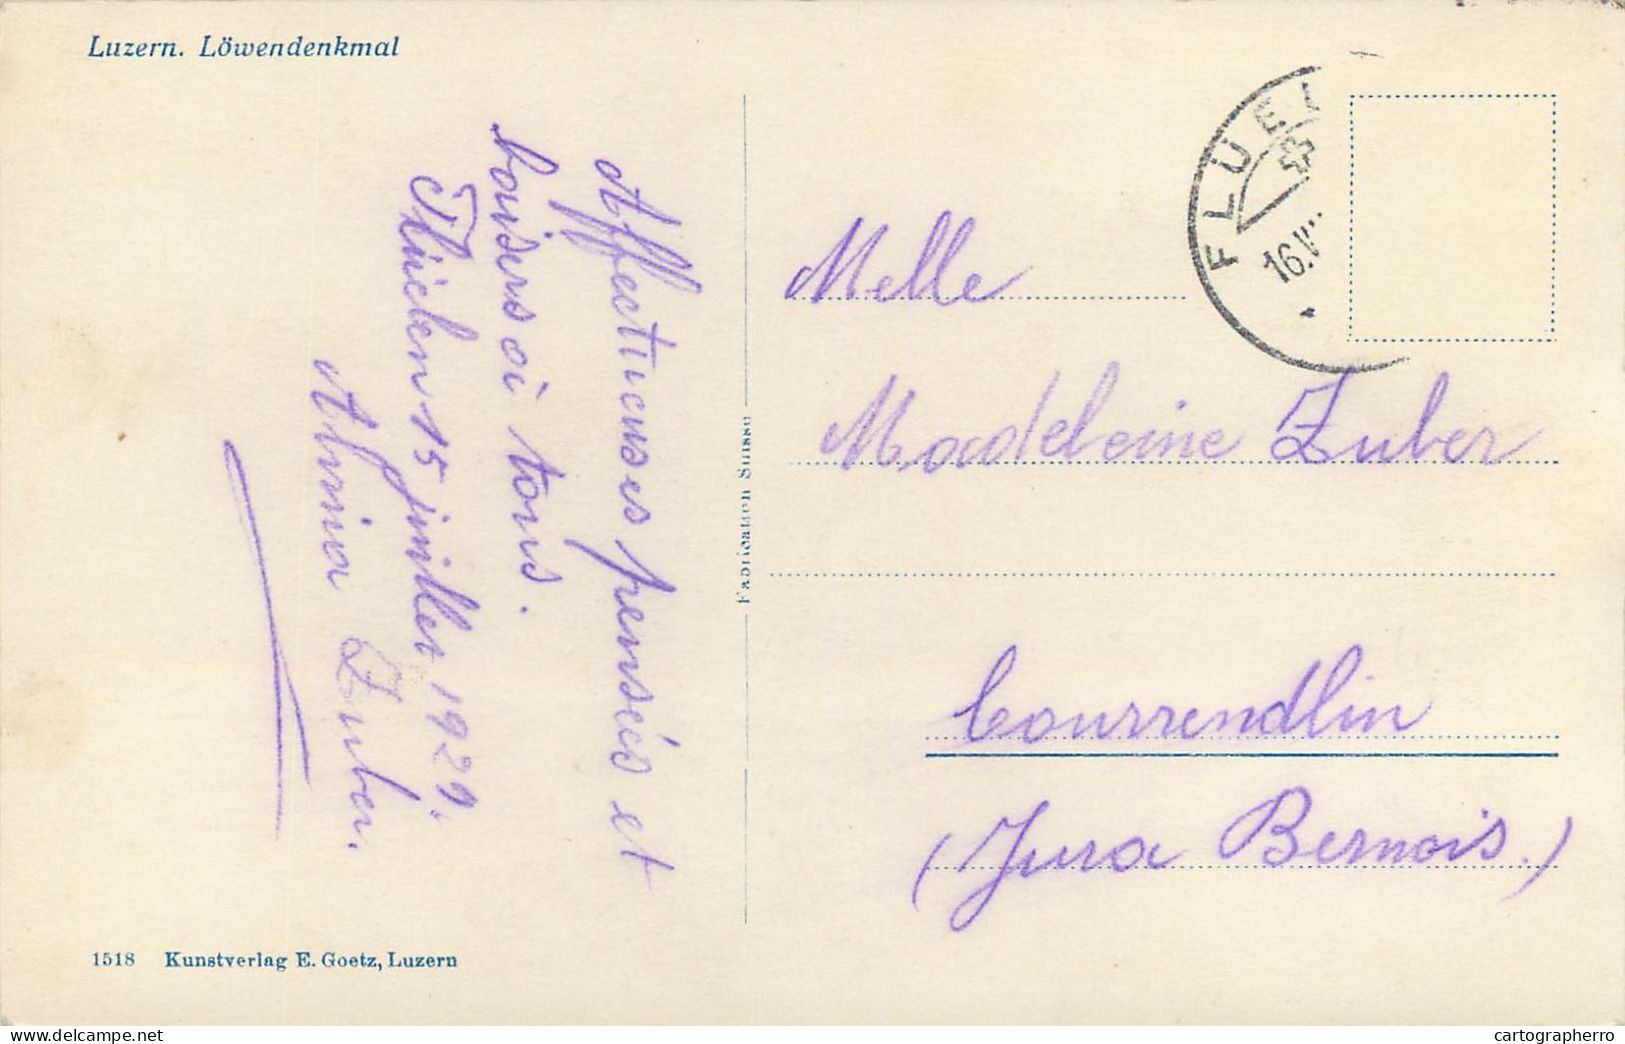 Luzern. Löwendenkmal
Affectueuses pensées et
baisers à tous.
Flüelen 15 juillet 1929.
Zuber.
Fabrication Suisse
FLÜEL
16.V
Melle
Madeleine Zuber
Courrendlin
(Jura Bernois.)
1518 Kunstverlag E. Goetz, Luzern
www.delcampe.net
cartographerro